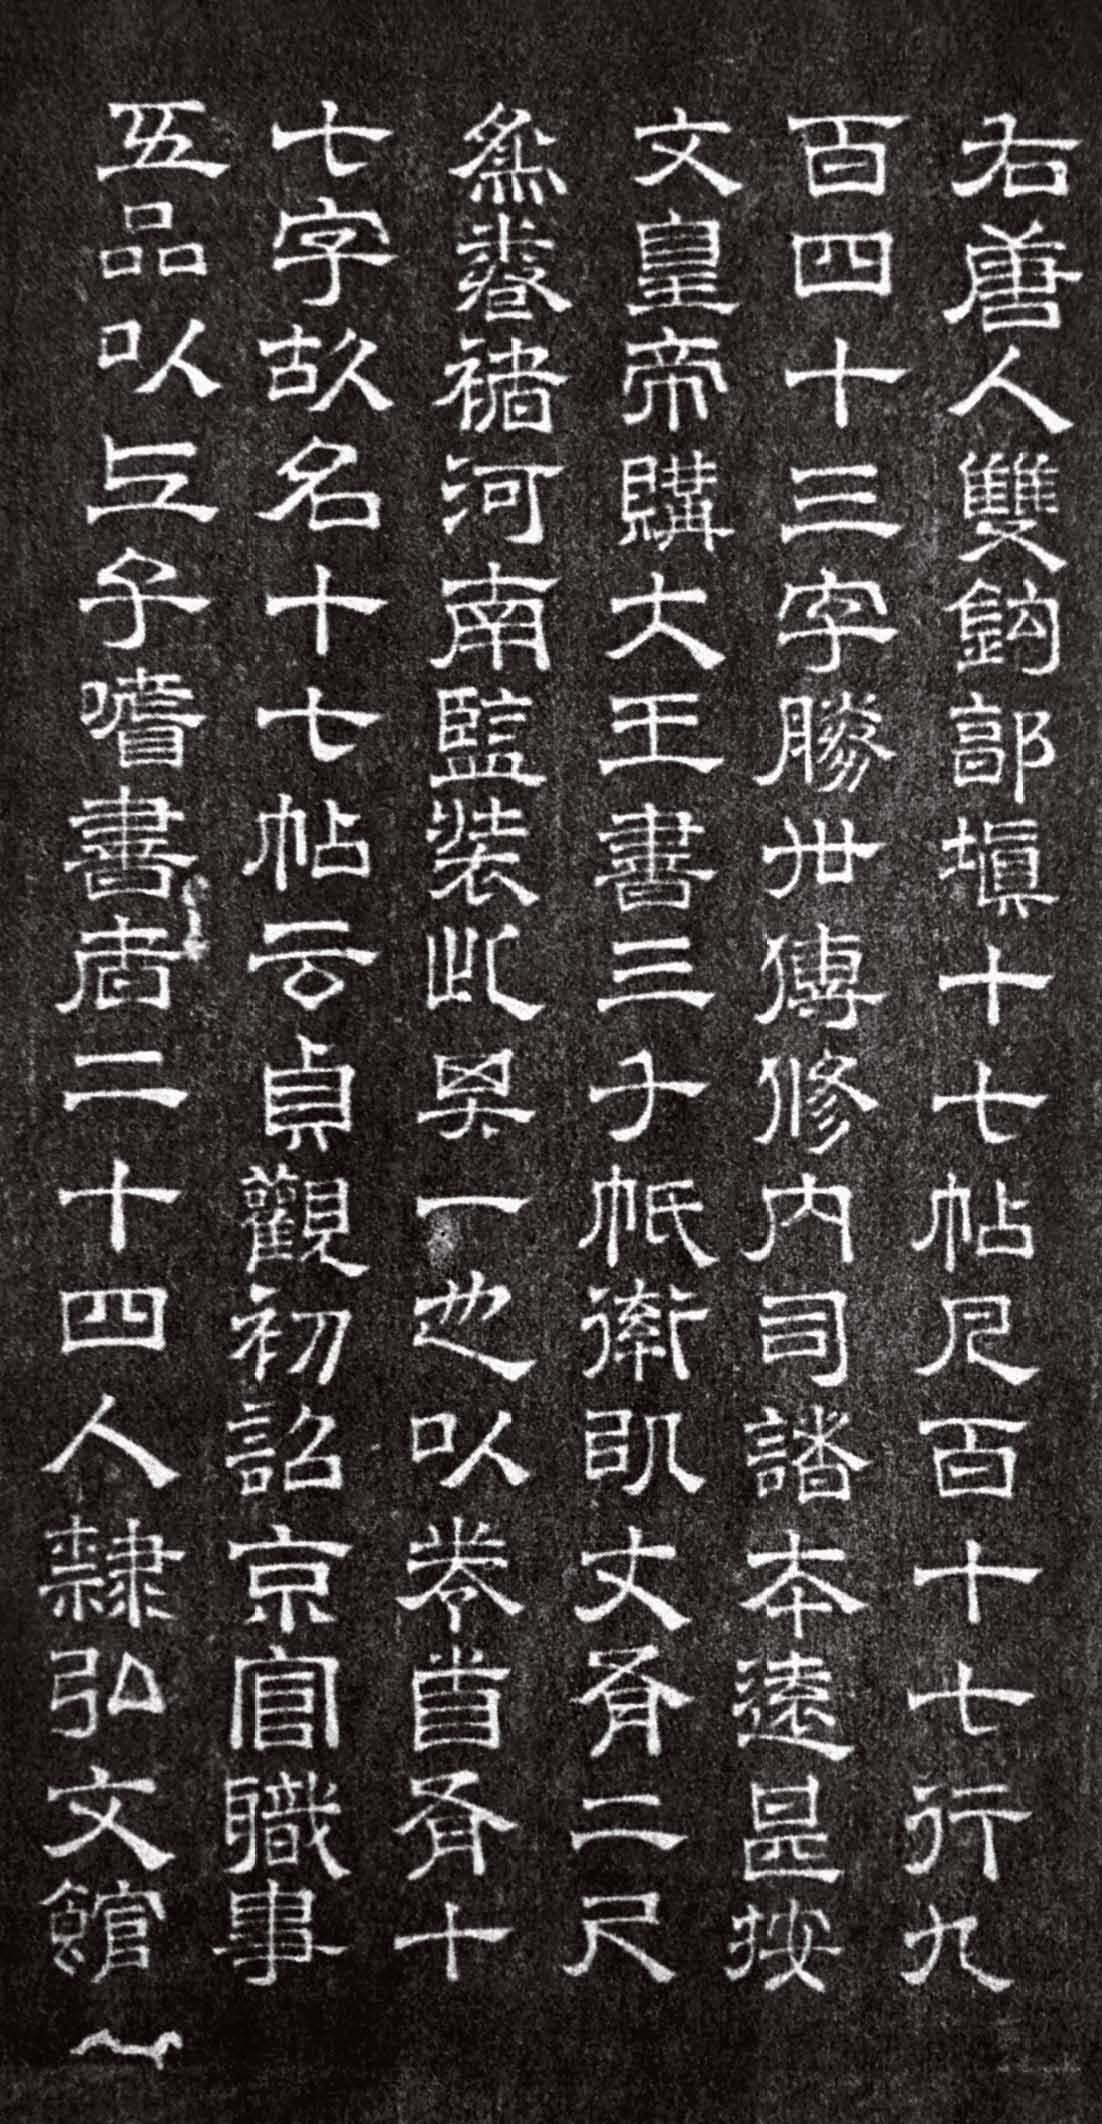 右唐人雙鈎郭填十七帖凡百十七行九
百四十三字勝世傳修內司諸本遠甚按
文皇帝購大王書三千帋率丈有二尺
為卷褚河南監裝此其一也以卷首有十
七字故名十七帖云貞觀初詔京官職事
五品以上子嗜書者二十四人隸弘文館